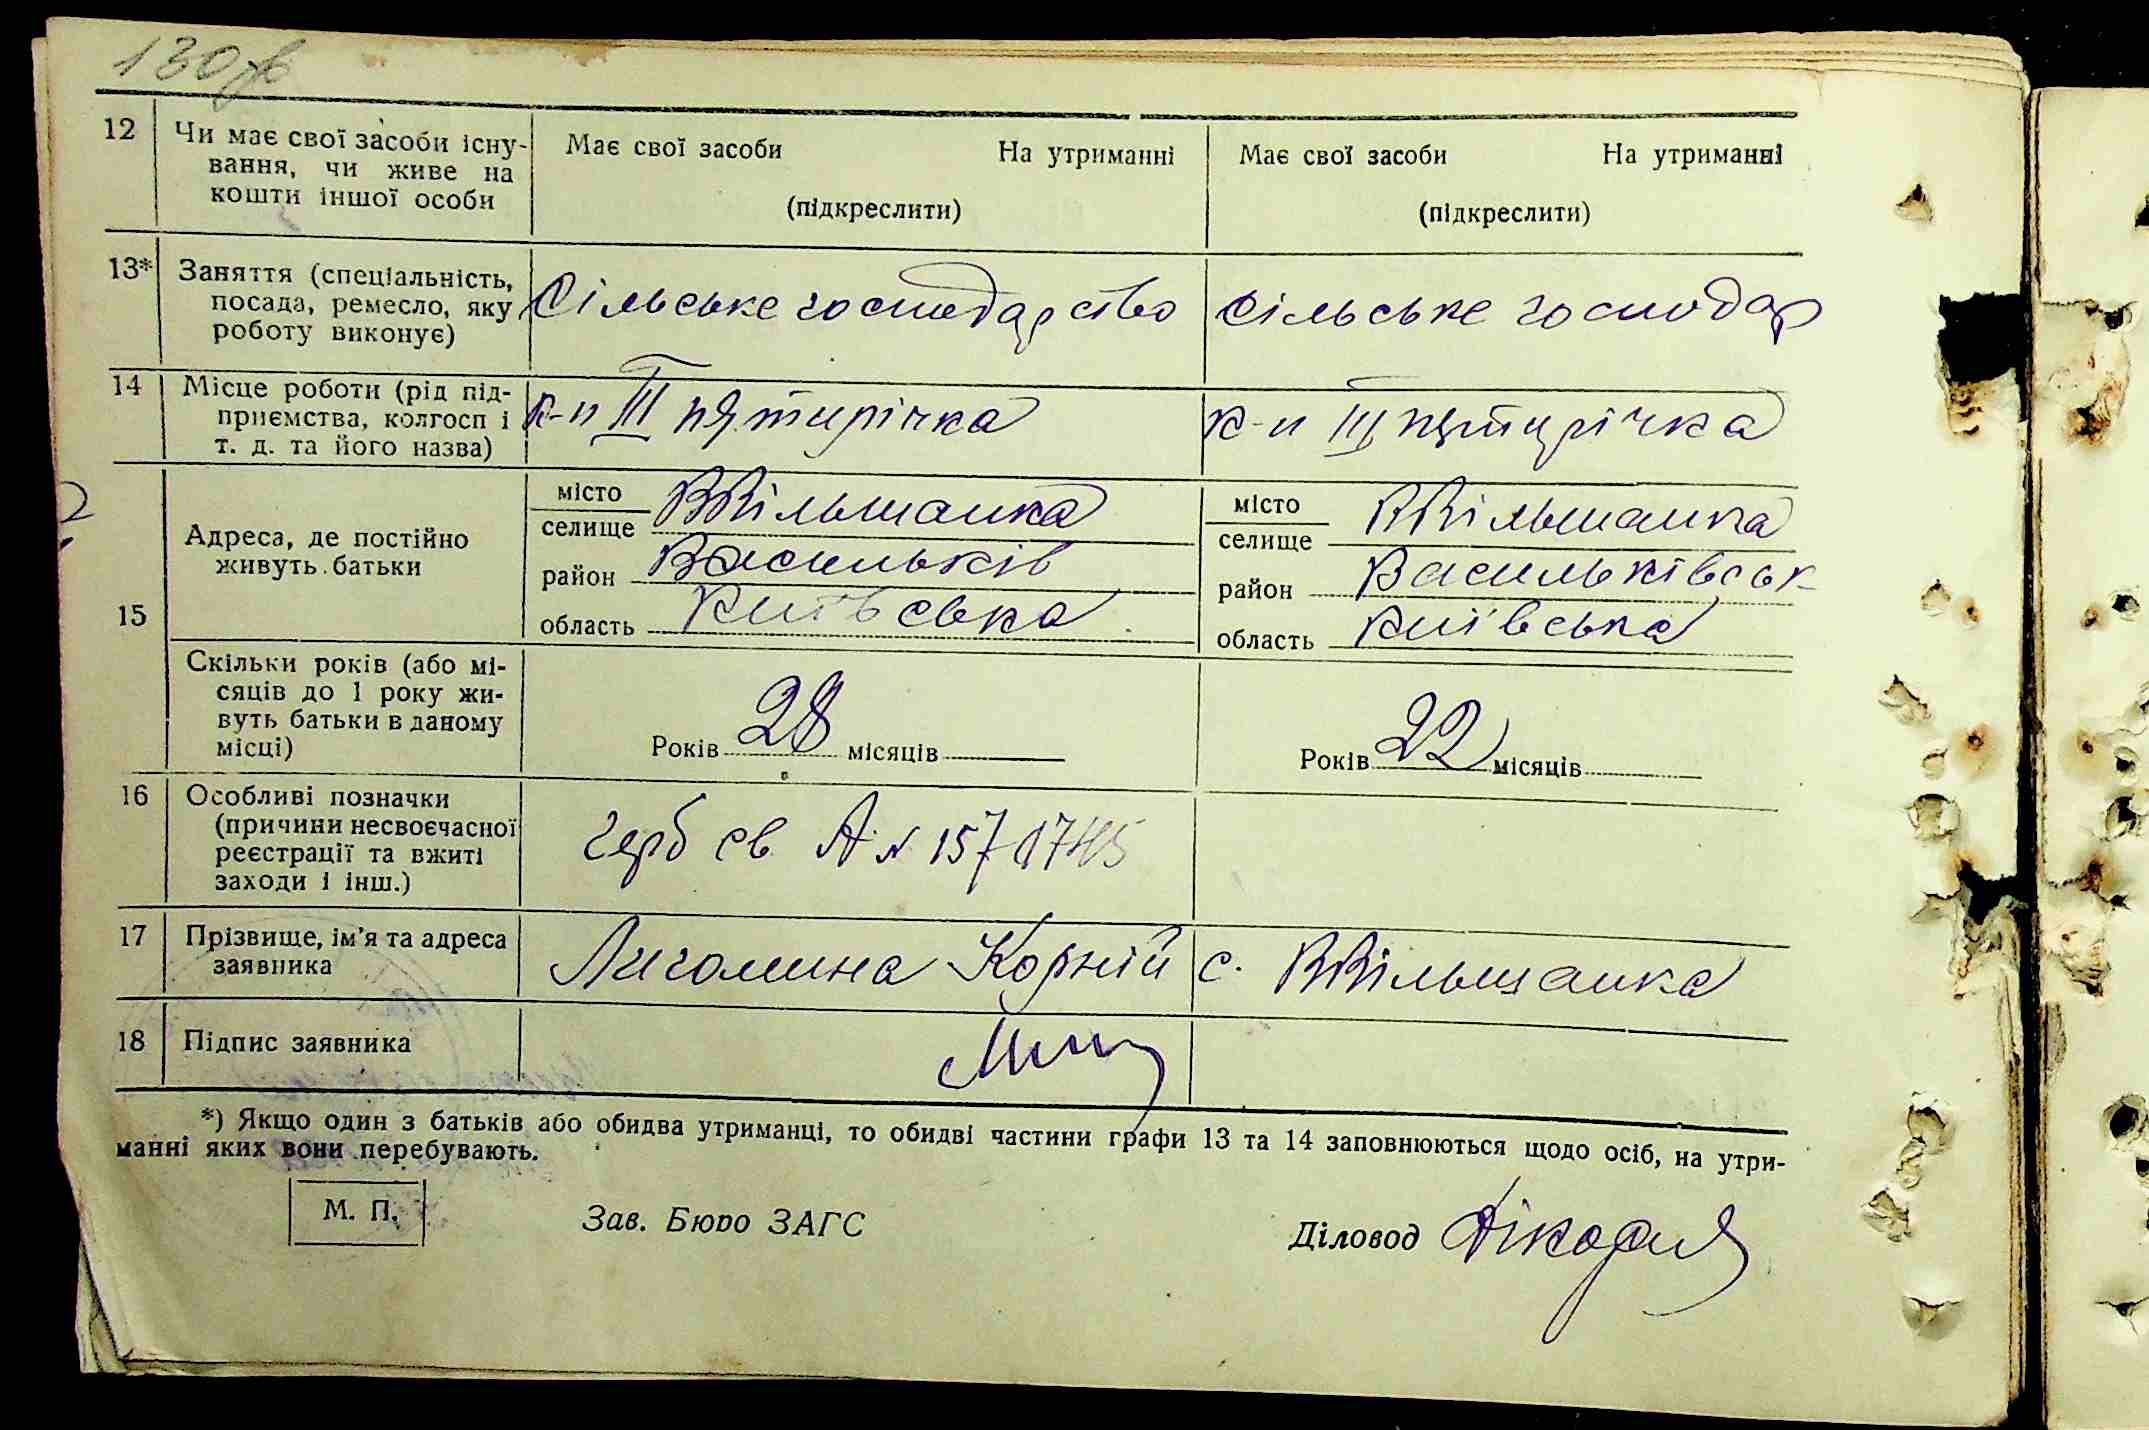 130зв
12 Чи має свої засоби існу- Має свої засоби На утриманні Має свої засоби На утриманні
вання, чи живе на
кошти іншої особи (підкреслити) (підкреслити)
13* Заняття (спеціальність,
посада, ремесло, яку Сільське господарство сільське господар
роботу виконує)
14 Місце роботи (рід під-
приємства, колгосп і к-п III пятирічка к-п III пятирічка
т. д. та його назва)
15 Адреса, де постійно
живуть батьки
місто ВВільшанка місто ВВільшанка
селище селище
район Васильків район Васильківськ
область Київська область Київська
Скільки років (або мі-
сяців до 1 року жи-
вуть батьки в даному
місці) Років 28 місяців Років 22 місяців
16 Особливі позначки
(причини несвоєчасної
реєстрації та вжиті герб св А № 1571745
заходи і інш.)
17 Прізвище, ім'я та адреса Лигомина Корній с. ВВільшанка
заявника
18 Підпис заявника
*) Якщо один з батьків або обидва утриманці, то обидві частини графи 13 та 14 заповнюються щодо осіб, на утри-
манні яких вони перебувають.
М. П. Зав. Бюро ЗАГС Діловод